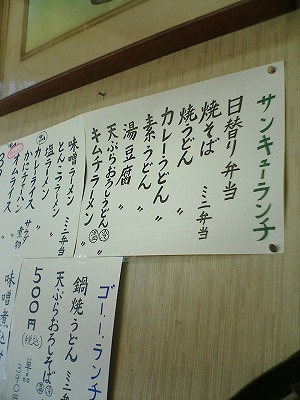 サンキューランチ
日替り弁当
焼そば ミニ弁当
焼うどん 〃
カレーうどん 〃
素うどん 〃
湯豆腐 〃
天ぷらおろしうどん
キムチラーメン 〃
味噌ラーメン ミニ弁当
とんこつラーメン 〃
塩ラーメン 〃
カレーライス サラダ
かにチャーハン 煮物
オムライス 〃
ゴー!ランチ
鍋焼うどん ミニ弁
天ぷらおろしそば
500円(税込)
単品
390円
味噌煮込